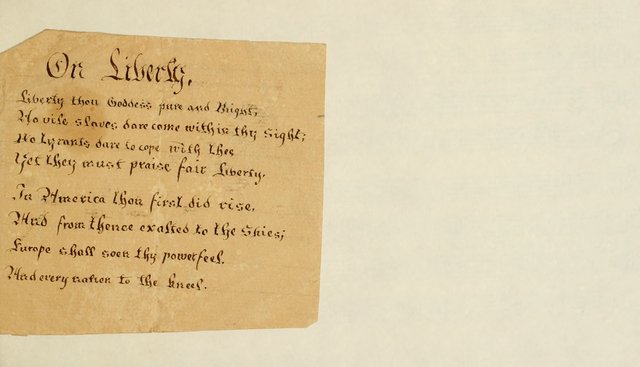 On Liberty.
Liberty thou Goddess pure and Bright,
No vile slaves dare come within thy Sight;
No tyrants dare to cope with thee
Yet they must praise fair Liberty.
In America thou first did rise,
And from thence exalted to the Skies;
Europe shall soon thy power feel.
And every nation to the kneel.